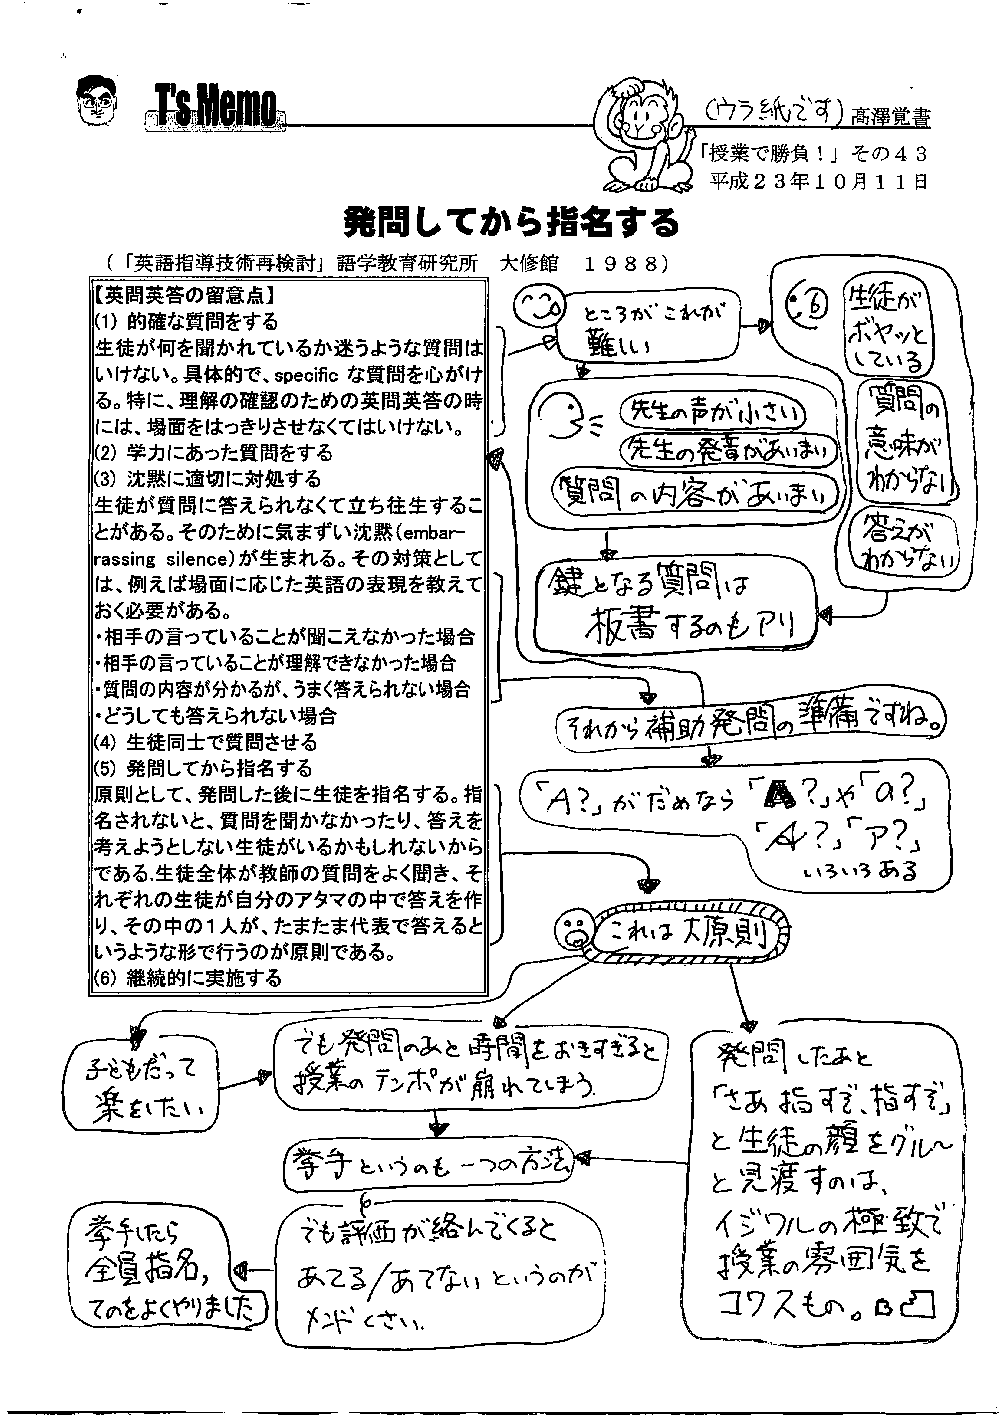 T's Memo
(ウラ紙です) 高澤覚書
「授業で勝負!」その43
平成23年10月11日
発問してから指名する
(「英語指導技術再検討」語学教育研究所 大修館 1988)
【英問英答の留意点】
(1) 的確な質問をする
生徒が何を聞かれているか迷うような質問は
いけない。具体的で、specific な質問を心がけ
る。特に、理解の確認のための英問英答の時
には、場面をはっきりさせなくてはいけない。
(2) 学力にあった質問をする
(3) 沈黙に適切に対処する
生徒が質問に答えられなくて立ち往生するこ
とがある。そのために気まずい沈黙(embar-
rassing silence)が生まれる。その対策として
は、例えば場面に応じた英語の表現を教えて
おく必要がある。
・相手の言っていることが聞こえなかった場合
・相手の言っていることが理解できなかった場合
・質問の内容が分かるが、うまく答えられない場合
・どうしても答えられない場合
(4) 生徒同士で質問させる
(5) 発問してから指名する
原則として、発問した後に生徒を指名する。指
名されないと、質問を聞かなかったり、答えを
考えようとしない生徒がいるかもしれないから
である.生徒全体が教師の質問をよく聞き、そ
れぞれの生徒が自分のアタマの中で答えを作
り、その中の1人が、たまたま代表で答えると
いうような形で行うのが原則である。
(6) 継続的に実施する
ところがこれが
難しい
生徒が
ボヤッと
している
質問の
意味が
わからない
答えが
わからない
先生の声が小さい
先生の発音があいまい
質問の内容があいまい
鍵となる質問は
板書するのもアリ
それから補助発問の準備ですね。
「A?」がだめなら「A?」や「a?」
「A?」「ア?」
いろいろある
これは大原則
子どもだって
楽をしたい
でも発問のあと時間をおきすぎると
授業のテンポが崩れてしまう.
挙手というのも一つの方法
でも評価が絡んでくると
あてる/あてないというのが
メンドくさい.
挙手したら
全員指名,
てのをよくやりました
発問したあと
「さあ指すぞ、指すぞ」
と生徒の顔をグルー
と見渡すのは、
イジワルの極致で
授業の雰囲気を
コワスもの。